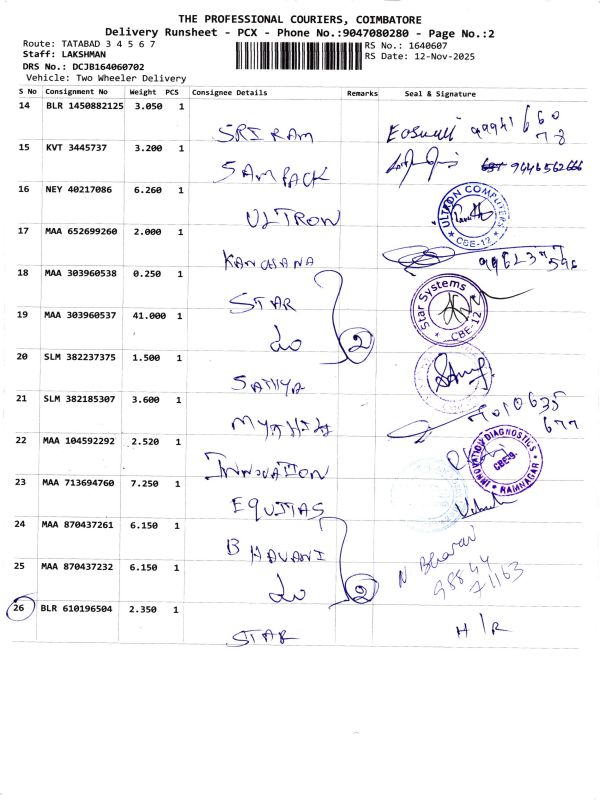 THE PROFESSIONAL COURIERS, COIMBATORE
Delivery Runsheet - PCX - Phone No.:9047080280 - Page No.:2
Route: TATABAD 3 4 5 6 7
RS No.: 1640607
Staff: LAKSHMAN
RS Date: 12-Nov-2025
DRS No.: DCJB164060702
Vehicle: Two Wheeler Delivery
S No Consignment No Weight PCS Consignee Details Remarks Seal & Signature
14 BLR 1450882125 3.050 1
SRI RAM 99941 660
78
15 KVT 3445737 3.200 1
SAM PACK 9446562666
16 NEY 40217086 6.260 1
ULTRON ULTRON COMPUTERS CBE-12
17 MAA 652699260 2.000 1
KANCHANA
18 MAA 303960538 0.250 1
STAR Star Systems CBE-12
19 MAA 303960537 41.000 1
do 2
20 SLM 382237375 1.500 1
SATHYA
21 SLM 382185307 3.600 1
MYTHILI 7010635
677
22 MAA 104592292 2.520 1
INNOVATION INNOVATION DIAGNOSTICS CBE-9. RAMNAGAR
23 MAA 713694760 7.250 1
EQUITAS
24 MAA 870437261 6.150 1
BHAVANI N Bharavi
25 MAA 870437232 6.150 1
do 2 98844
71163
26 BLR 610196504 2.350 1
STAR H/R